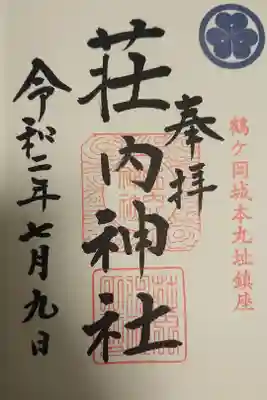 鶴ヶ岡城本丸址鎮座
奉拝
荘内神社
令和二年七月九日